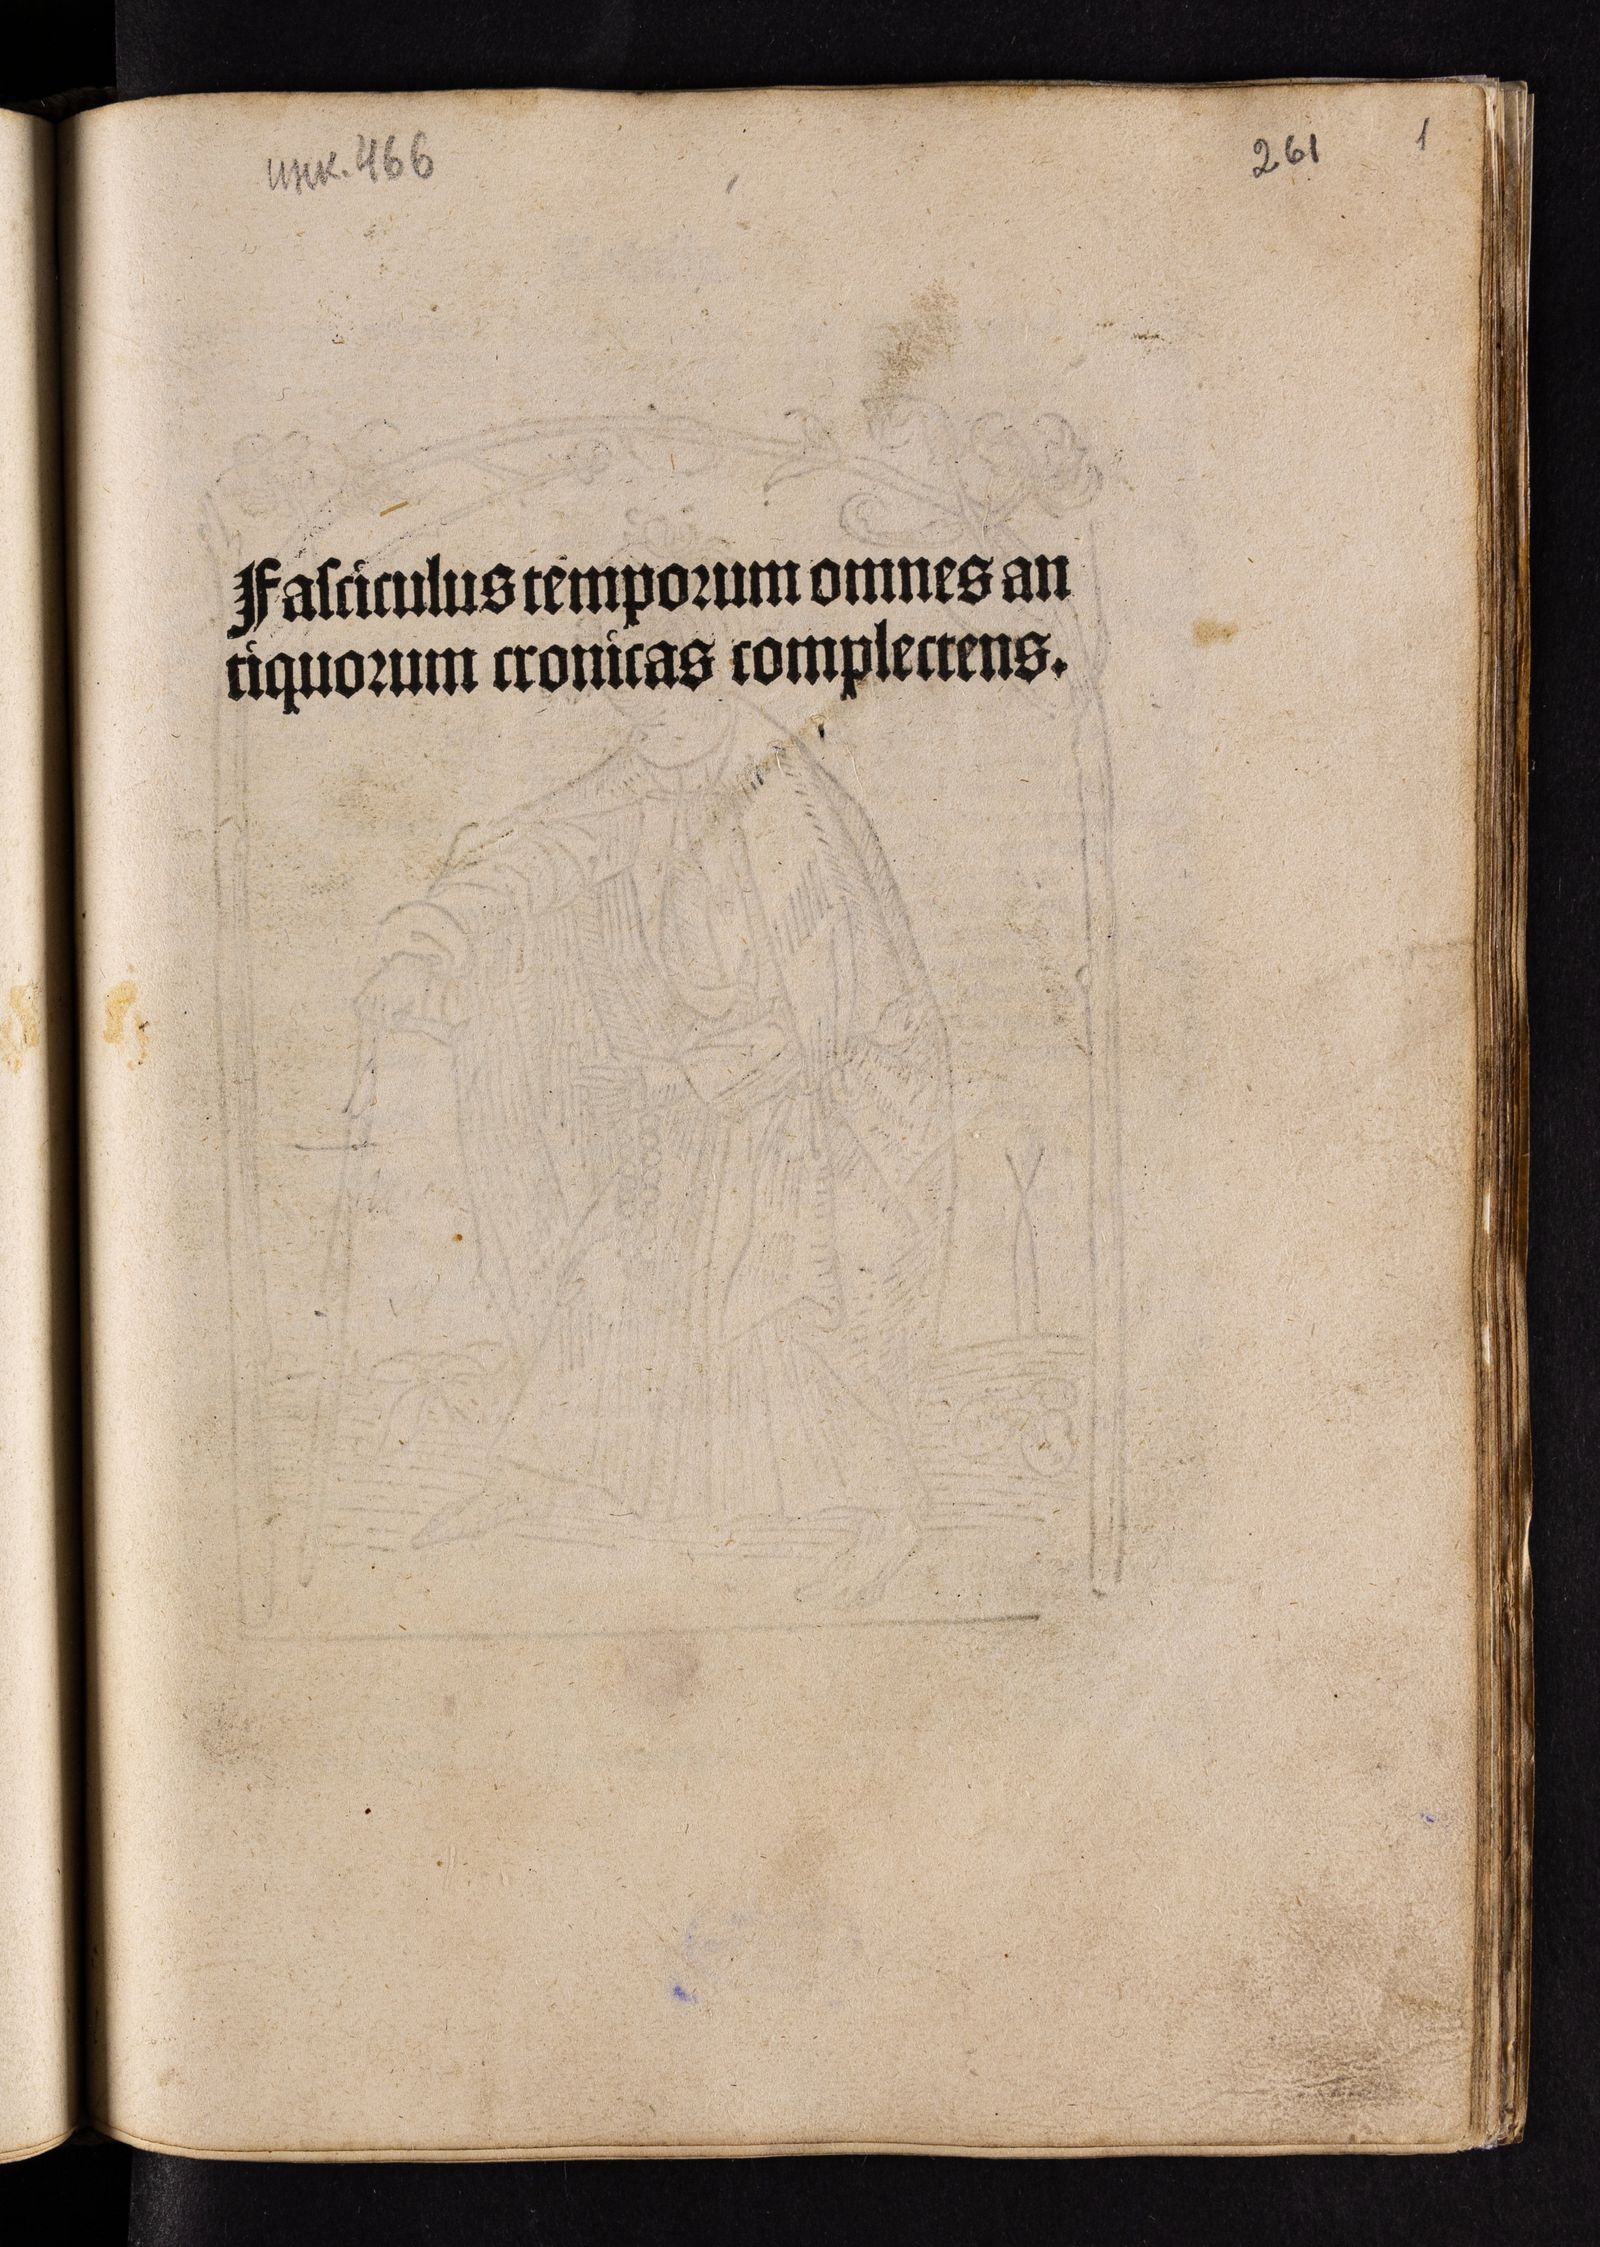 инк. 466
261
1
Faſciculus temporum omnes an
tiquorum cronicas complectens.